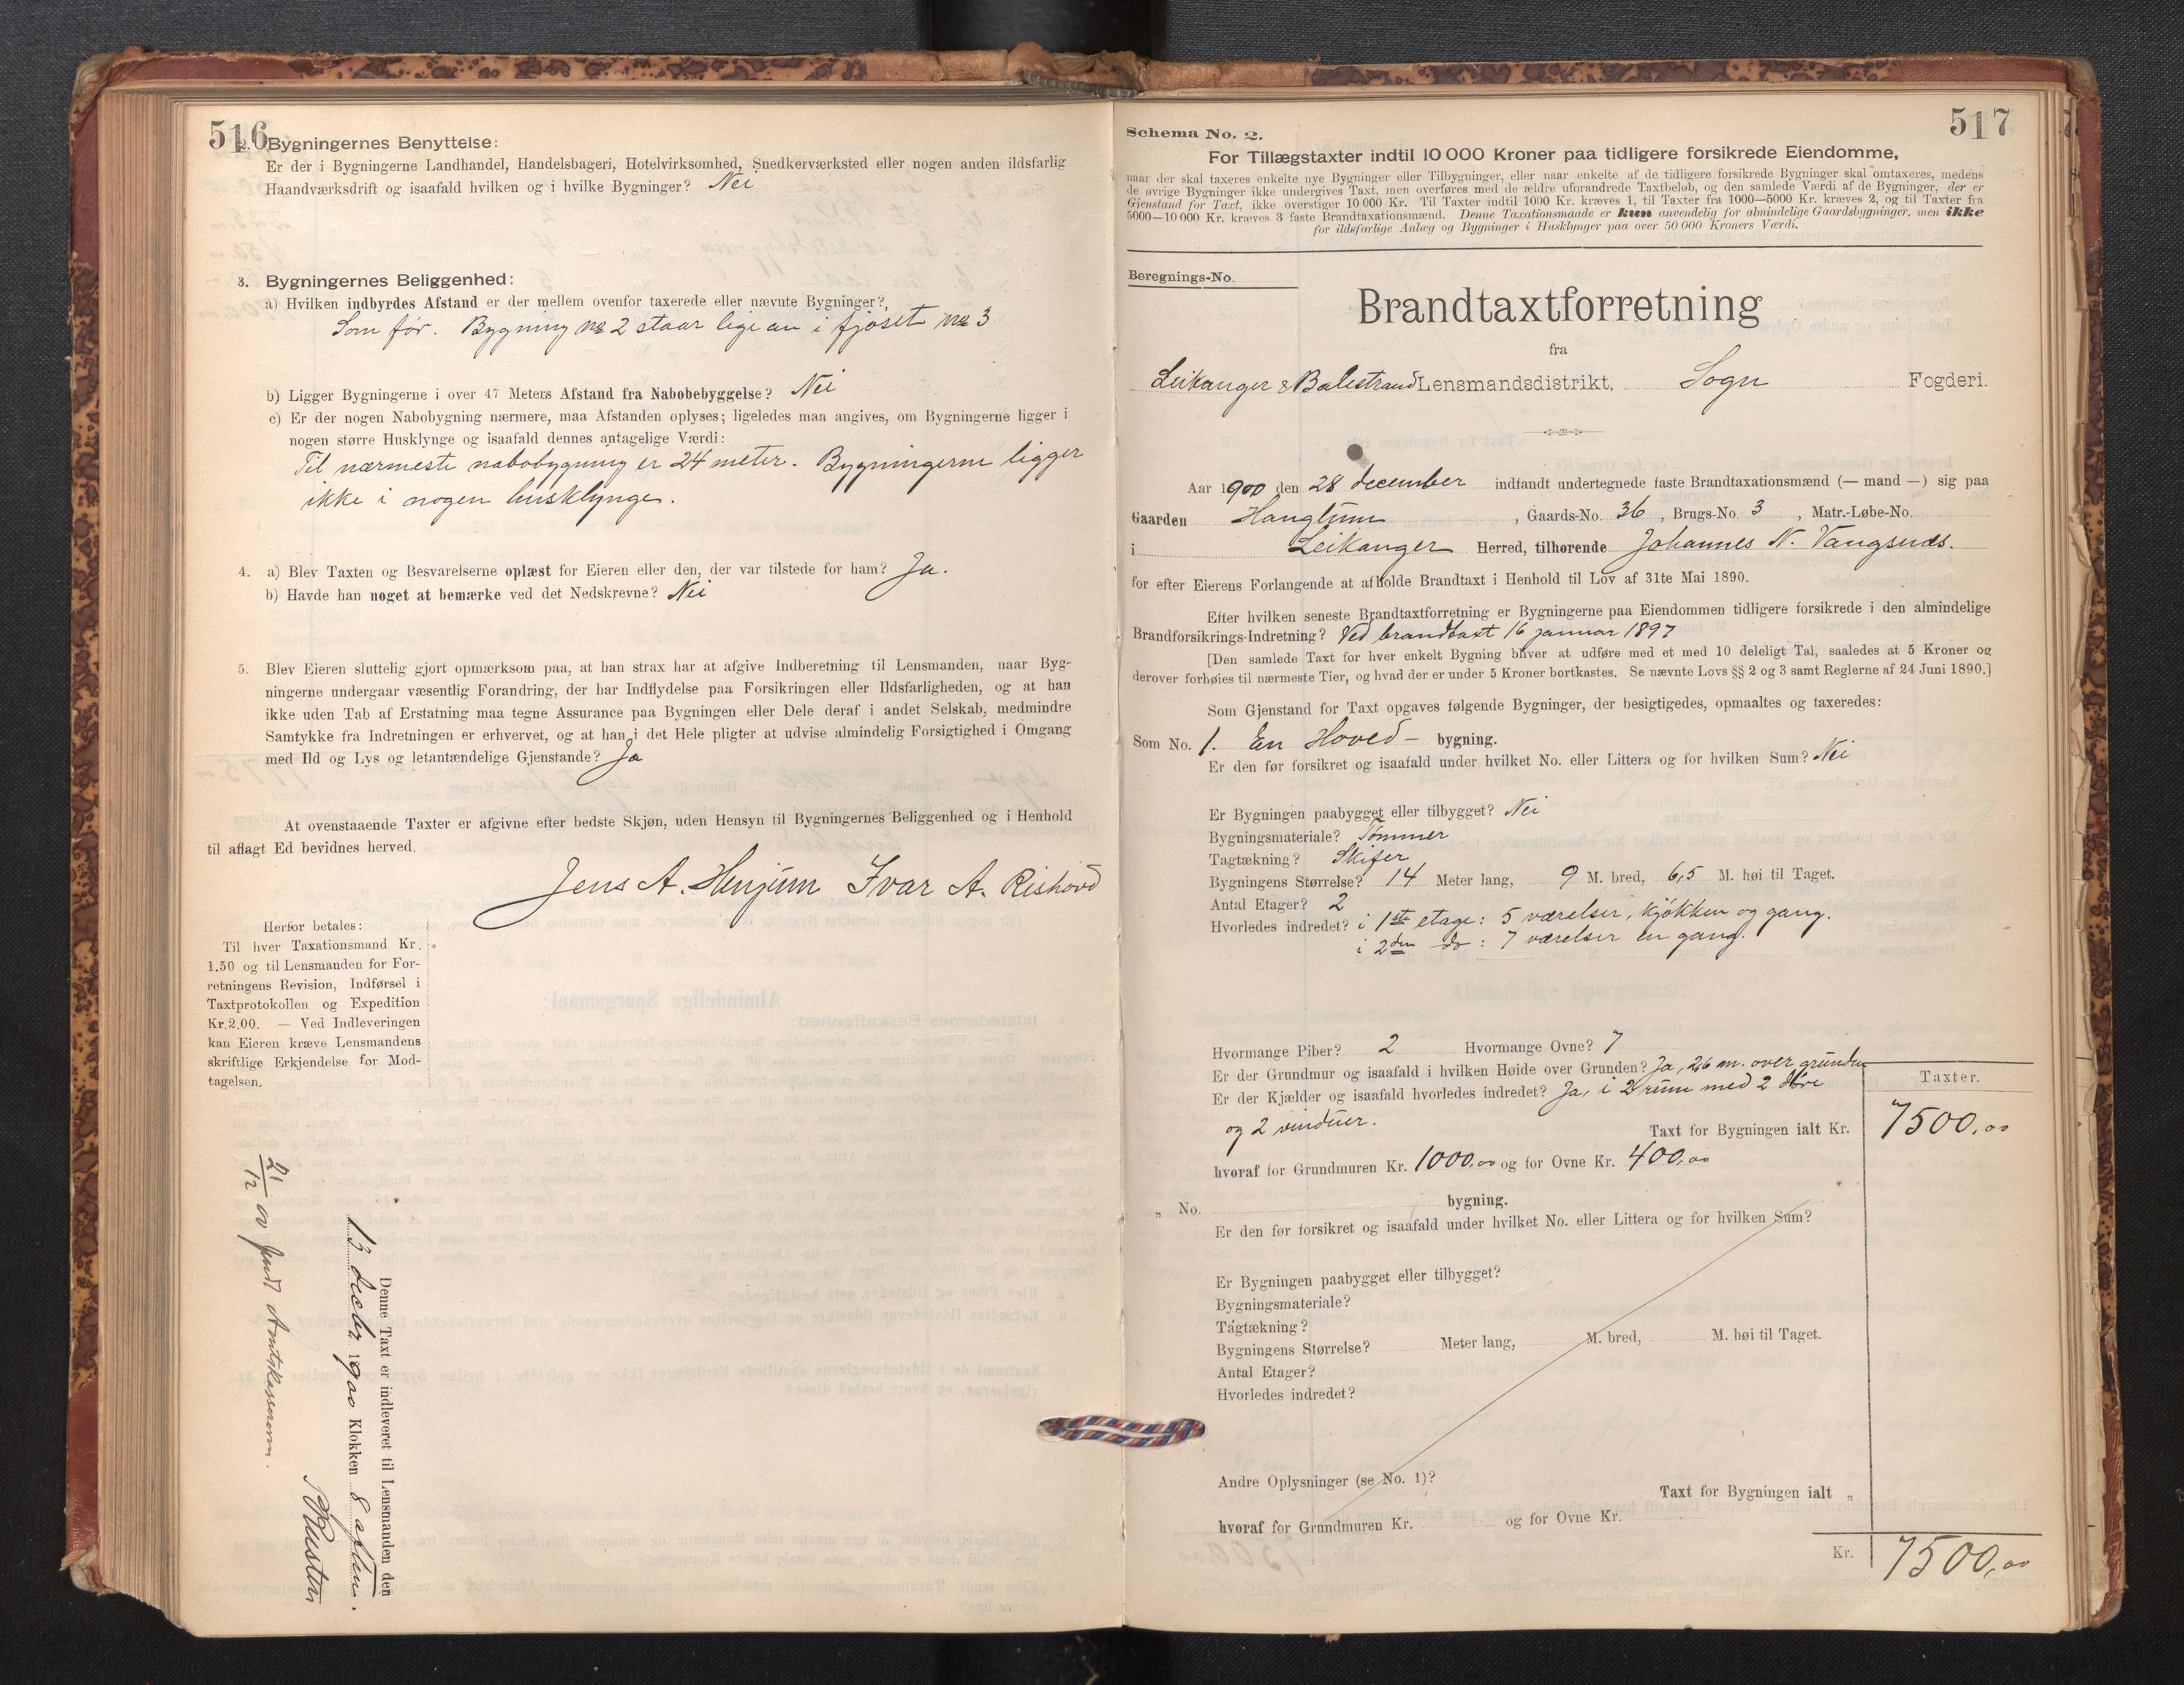 516
2. Bygningernes Benyttelse:
Er der i Bygningerne Landhandel, Handelsbageri, Hotelvirksomhed, Snedkerværksted eller nogen anden ildsfarlig
Haandværksdrift og isaafald hvilken og i hvilke Bygninger? Nei
3. Bygningernes Beliggenhed:
a) Hvilken indbyrdes Afstand er der mellem ovenfor taxerede eller nævnte Bygninger?
Som før. Bygning No 2 staar lige an i fjöset No 3
b) Ligger Bygningerne i over 47 Meters Afstand fra Nabobebyggelse? Nei
c) Er der nogen Nabobygning nærmere, maa Afstanden oplyses; ligeledes maa angives, om Bygningerne ligger i
nogen større Husklynge og isaafald dennes antagelige Værdi:
Til nærmeste nabobygning er 24 meter. Bygningerne ligger
ikke i nogen husklynge.
4. a) Blev Taxten og Besvarelserne oplæst for Eieren eller den, der var tilstede for ham? Ja.
b) Havde han noget at bemærke ved det Nedskrevne? Nei
5. Blev Eieren sluttelig gjort opmærksom paa, at han strax har at afgive Indberetning til Lensmanden, naar Byg-
ningerne undergaar væsentlig Forandring, der har Indflydelse paa Forsikringen eller Ildsfarligheden, og at han
ikke uden Tab af Erstatning maa tegne Assurance paa Bygningen eller Dele deraf i andet Selskab, medmindre
Samtykke fra Indretningen er erhvervet, og at han i det Hele pligter at udvise almindelig Forsigtighed i Omgang
med Ild og Lys og letantændelige Gjenstande? Ja
At ovenstaaende Taxter er afgivne efter bedste Skjøn, uden Hensyn til Bygningernes Beliggenhed og i Henhold
til aflagt Ed bevidnes herved.
Jens A. Henjum Ivar A. Rishovd
Herfor betales:
Til hver Taxationsmand Kr.
1.50 og til Lensmanden for For-
retningens Revision, Indførsel i
Taxtprotokollen og Expedition
Kr. 2.00. — Ved Indleveringen
kan Eieren kræve Lensmandens
skriftlige Erkjendelse for Mod-
tagelsen.
Denne Taxt er indleveret til Lensmanden den
13 decbr 1900 Klokken 8 aften.
21/12 00 sendt Amtskassereren.
517
Schema No. 2.
For Tillægstaxter indtil 10 000 Kroner paa tidligere forsikrede Eiendomme,
naar der skal taxeres enkelte nye Bygninger eller Tilbygninger, eller naar enkelte af de tidligere forsikrede Bygninger skal omtaxeres, medens
de øvrige Bygninger ikke undergives Taxt, men overføres med de ældre uforandrede Taxtbeløb, og den samlede Værdi af de Bygninger, der er
Gjenstand for Taxt, ikke overstiger 10 000 Kr. Til Taxter indtil 1000 Kr. kræves 1, til Taxter fra 1000—5000 Kr. kræves 2, og til Taxter fra
5000—10 000 Kr. kræves 3 faste Brandtaxationsmænd. Denne Taxationsmaade er kun anvendelig for almindelige Gaardsbygninger, men ikke
for ildsfarlige Anlæg og Bygninger i Husklynger paa over 50 000 Kroners Værdi.
Beregnings-No.
Brandtaxtforretning
fra
Leikanger & Balestrand Lensmandsdistrikt, Sogn Fogderi.
Aar 1900 den 28 december indfandt undertegnede faste Brandtaxationsmænd (— mand —) sig paa
Gaarden Hanglum, Gaards-No. 36, Brugs-No. 3, Matr.-Løbe-No.
i Leikanger Herred, tilhørende Johannes N. Vangsnes.
for efter Eierens Forlangende at afholde Brandtaxt i Henhold til Lov af 31te Mai 1890.
Efter hvilken seneste Brandtaxtforretning er Bygningerne paa Eiendommen tidligere forsikrede i den almindelige
Brandforsikrings-Indretning? Ved brandtaxt 16 januar 1897
[Den samlede Taxt for hver enkelt Bygning bliver at udføre med et med 10 deleligt Tal, saaledes at 5 Kroner og
derover forhøies til nærmeste Tier, og hvad der er under 5 Kroner bortkastes. Se nævnte Lovs §§ 2 og 3 samt Reglerne af 24 Juni 1890.]
Som Gjenstand for Taxt opgaves følgende Bygninger, der besigtigedes, opmaaltes og taxeredes:
Som No. 1. En Hoved- bygning.
Er den før forsikret og isaafald under hvilket No. eller Littera og for hvilken Sum? Nei
Er Bygningen paabygget eller tilbygget? Nei
Bygningsmateriale? Tømmer
Tagtækning? Skifer
Bygningens Størrelse? 14 Meter lang, 9 M. bred, 6,5 M. høi til Taget.
Antal Etager? 2
Hvorledes indredet? i 1ste etage: 5 værelser, kjøkken og gang.
i 2den do: 7 værelser en gang.
Hvormange Piber? 2 Hvormange Ovne? 7
Er der Grundmur og isaafald i hvilken Høide over Grunden? Ja, 2,6 m. over grunden
Er der Kjælder og isaafald hvorledes indredet? Ja, i 2 rum med 2 døre
og 2 vinduer.
Taxter.
Taxt for Bygningen ialt Kr. 7500,00
hvoraf for Grundmuren Kr. 1000,00 og for Ovne Kr. 400,00
„ No. bygning.
Er den før forsikret og isaafald under hvilket No. eller Littera og for hvilken Sum?
Er Bygningen paabygget eller tilbygget?
Bygningsmateriale?
Tagtækning?
Bygningens Størrelse? Meter lang, M. bred, M. høi til Taget.
Antal Etager?
Hvorledes indredet?
Andre Oplysninger (se No. 1)?
Taxt for Bygningen ialt „
hvoraf for Grundmuren Kr. og for Ovne Kr.
Kr. 7500,00